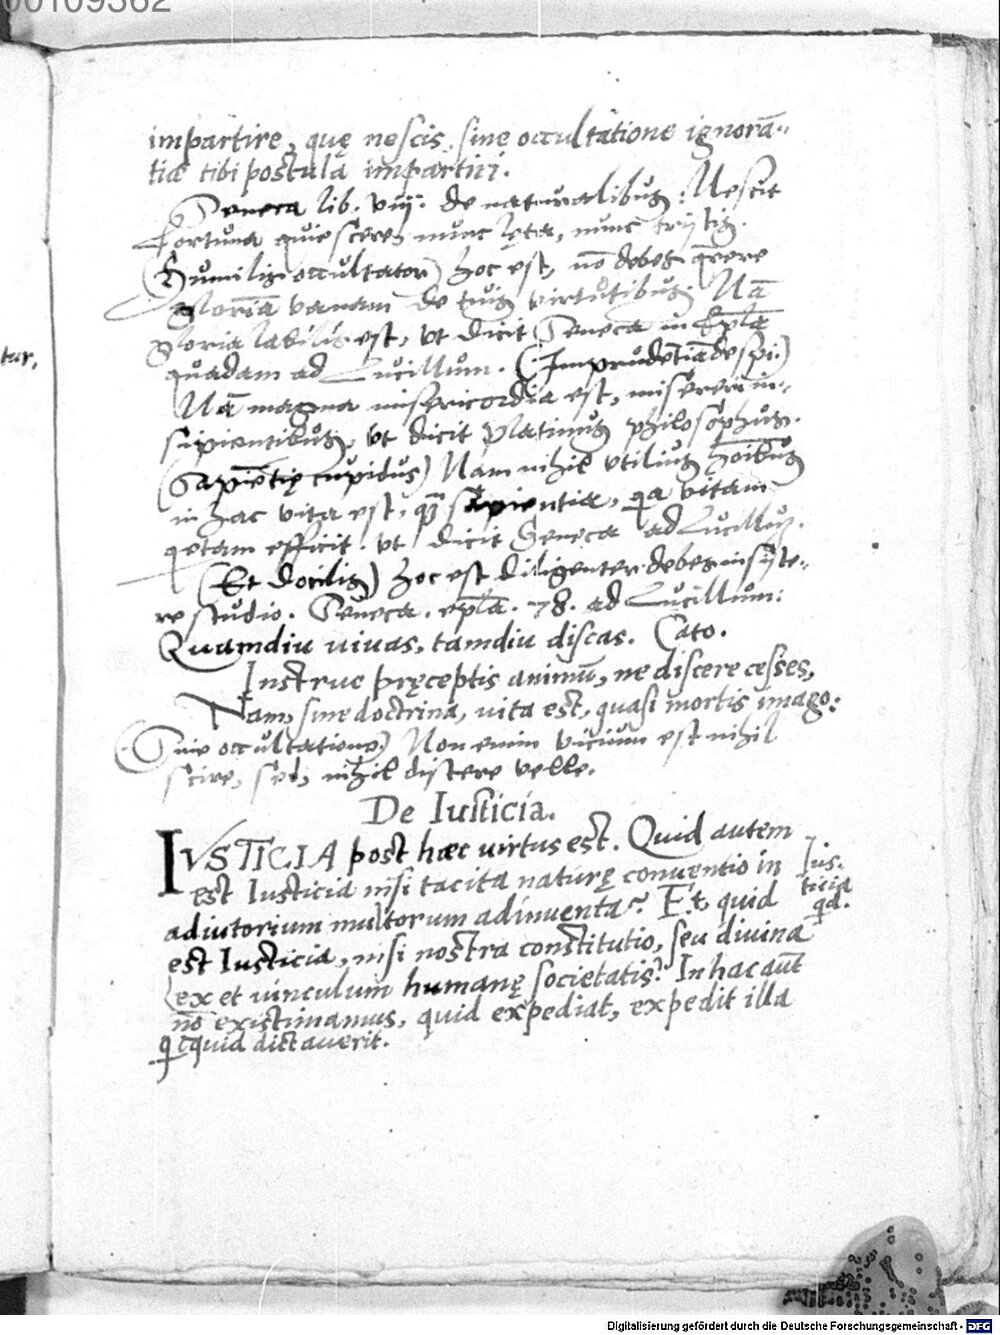 00109362
impartire, quę nescis, sine occultatione ignorā-
tiæ tibi postula impartiri.
Seneca lib. vij. de naturalibus: Nescit
fortuna quiescere, nunc lęta, nunc tristis.
(Humilis occultator) hoc est, nō debes qrere
gloriā vanam de tuis virtutibus. Nā
gloria labilis est, vt dicit Seneca in Epla
quadam ad Lucillum. (Imprudētiā despi.)
Nā magna misericordia est, misereri in-
sipientibus, vt dicit Platinus philosophus.
(Sapiētię cupidus) Nam nihil vtilius hoibus
in hac vita est, q̄ sapientia, qa vitam
qetam efficit. vt dicit Seneca ad Lucillu.
(Et docilis) hoc est diligenter debes insiste-
re studio. Seneca. epla. 78. ad Lucillum:
Quamdiu viuas, tamdiu discas. Cato.
Instrue pręceptis animū, ne discere cesses,
Nam, sine doctrina, vita est, quasi mortis imago:
(Sine occultatione) Non enim vicium est nihil
scire, sed, nihil discere velle.
De Iusticia.
IVSTICIA post hæc virtus est. Quid autem
est Iusticia nisi tacita naturę conuentio in
adiutorium multorum adinuenta? Et quid
Ius-
ticia
qd.
est Iusticia, nisi nostra constitutio, seu diuina
lex et vinculum humanę societatis? In hac aūt
nō existimamus, quid expediat, expedit illa
qcquid dictauerit.
tur,
Digitalisierung gefördert durch die Deutsche Forschungsgemeinschaft - DFG